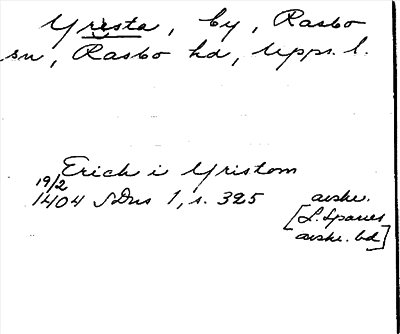 Yresta, by, Rasbo
sn, Rasbo hd, Upps. l.
Erich i Yristom
19/2
1404 SDns 1, s. 325 avskr.
[L. Sparres
avskr. bd]